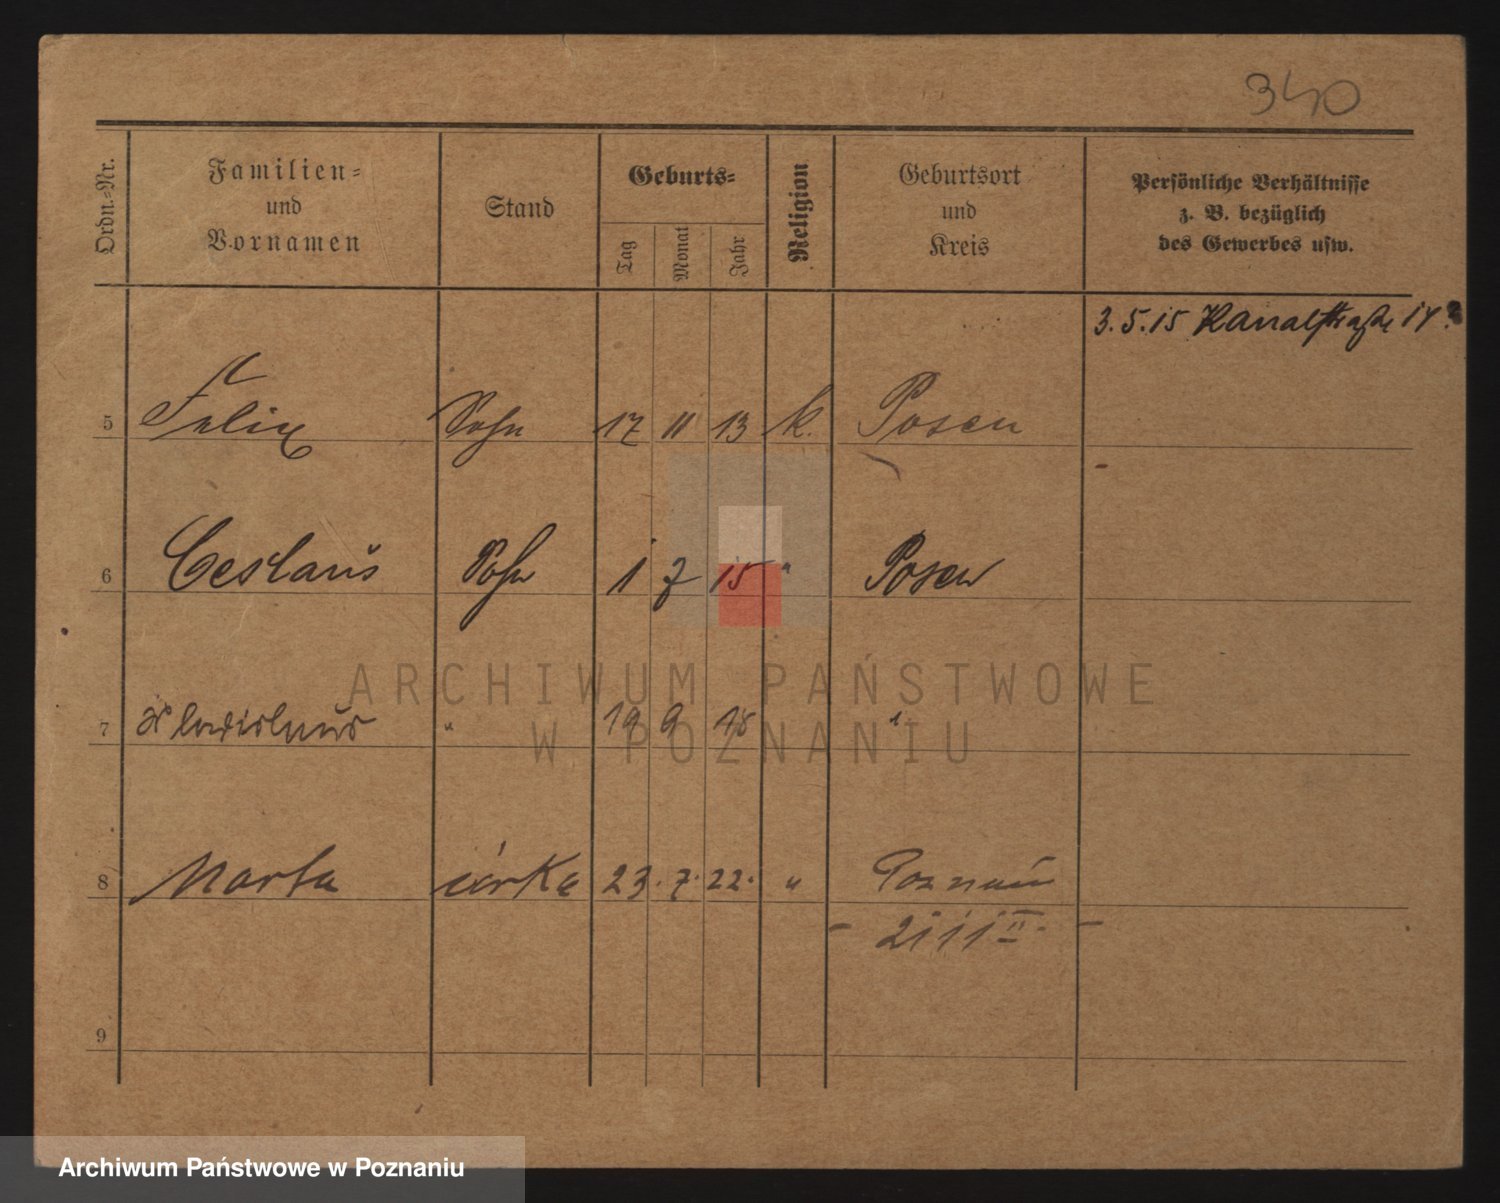 340
Ordn.-Nr.
Familien-
und
Vornamen
Stand
Geburts-
Tag
Monat
Jahr
Religion
Geburtsort
und
Kreis
Persönliche Verhältnisse
z. B. bezüglich
des Gewerbes usw.
3.5.15 Kanalstraße 17
5 Felix Sohn 17 11 13 k. Posen
6 Ceslaus Sohn 1 7 15 " Posen
7 Wladislaus " 19 9 18 "
8 Marta córka 23. 7. 22. " Poznań
9
ARCHIWUM PAŃSTWOWE
W POZNANIU
Archiwum Państwowe w Poznaniu